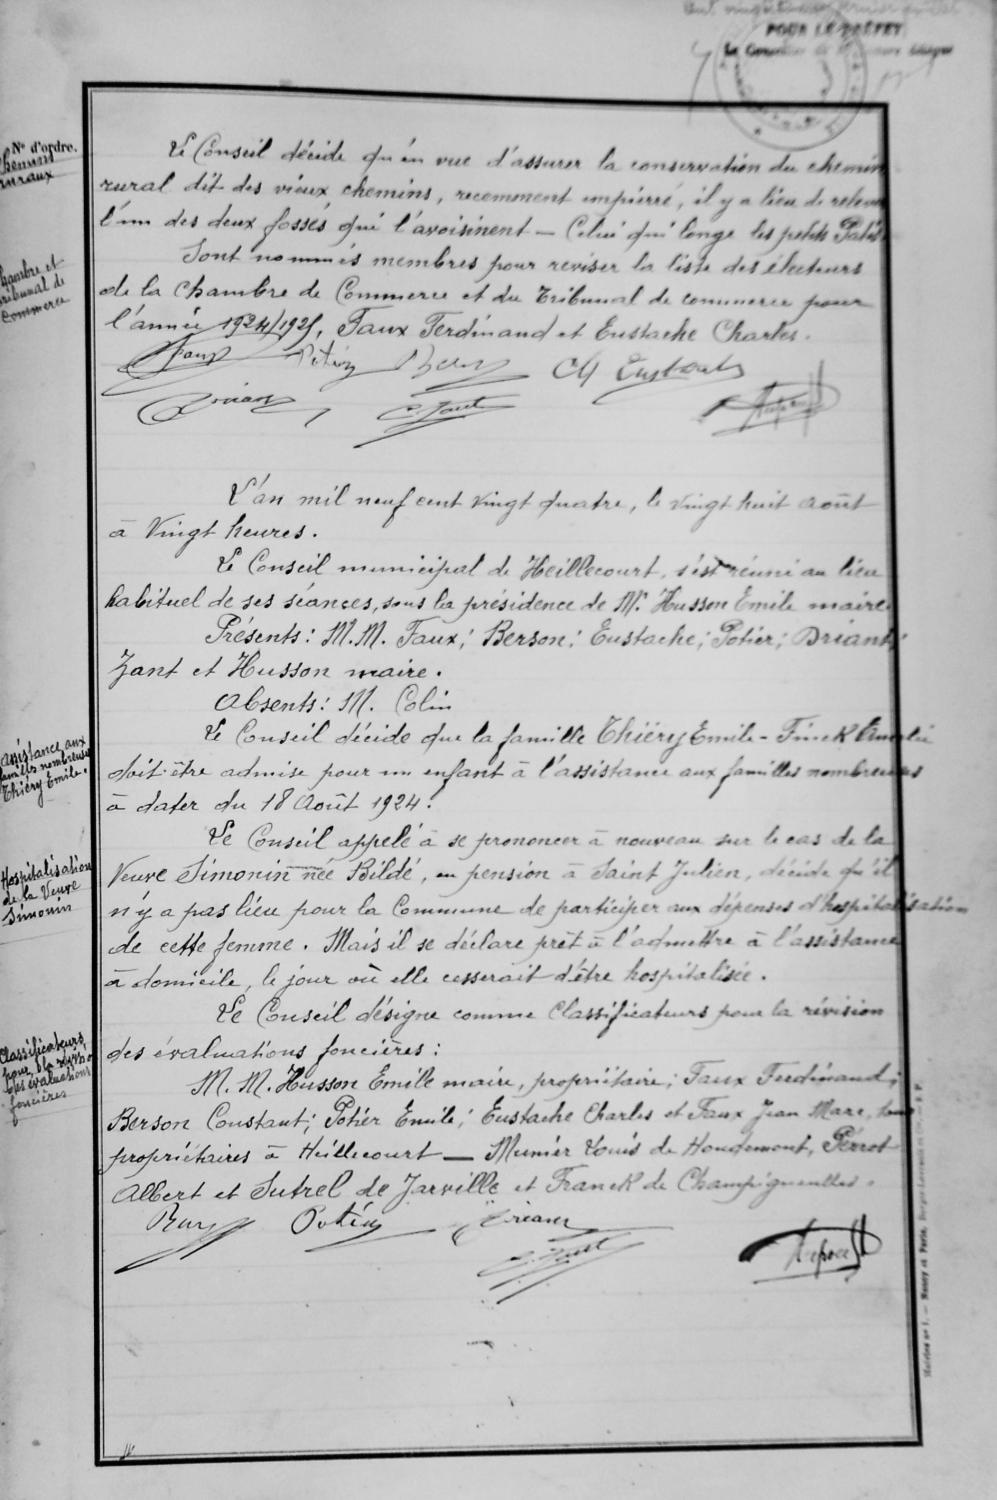 POUR LE PRÉFET
Nos d'ordre.
Chemins
ruraux
Le Conseil décide qu'en vue d'assurer la conservation du chemin
rural dit des vieux chemins, recemment empierré, il y a lieu de relever
l'un des deux fossés qui l'avoisinent — Celui qui longe les petits Patis.
Chambre et
Tribunal de
Commerce
Sont nommés membres pour reviser la liste des électeurs
de la Chambre de Commerce et du Tribunal de commerce pour
l'année 1924/1925, Faux Ferdinand et Eustache Charles.
Faux Potier Berson Ch Eustache
Briant
L'an mil neuf cent vingt quatre, le vingt huit août
à vingt heures.
Le Conseil municipal de Heillecourt, s'est réuni au lieu
habituel de ses séances, sous la présidence de Mr Husson Emile maire.
Présents: M.M. Faux; Berson; Eustache; Potier; Briant;
Zant et Husson maire.
Absents: M. Colin
Assistance aux
familles nombreuses
Thiéry Emile.
Le Conseil décide que la famille Thiéry Emile - Finck Amélie
doit être admise pour un enfant à l'assistance aux familles nombreuses
à dater du 18 Août 1924.
Hospitalisation
de la Veuve
Simonin
Le Conseil appelé à se prononcer à nouveau sur le cas de la
Veuve Simonin née Bildé, en pension à Saint Julien, décide qu'il
n'y a pas lieu pour la Commune de participer aux dépenses d'hospitalisation
de cette femme. Mais il se déclare prêt à l'admettre à l'assistance
à domicile, le jour où elle cesserait d'être hospitalisée.
Classificateurs
pour la révision
des évaluations
foncières
Le Conseil désigne comme Classificateurs pour la révision
des évaluations foncières:
M. M. Husson Emile maire, propriétaire; Faux Ferdinand;
Berson Constant; Potier Emile; Eustache Charles et Faux Jean Marc, tous
propriétaires à Heillecourt — Munier Louis de Houdemont, Pérrot
Albert et Sutrel de Jarville et Franck de Champigneulles.
Potier Briant